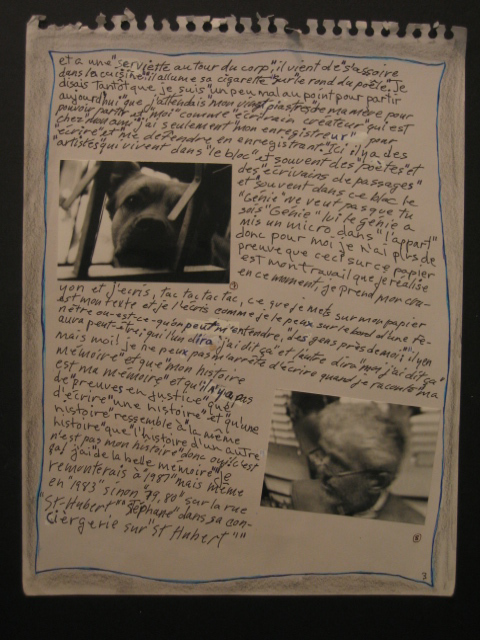 et a une "serviette autour du corp", il vient de "s'assoire
dans la cuisine" il allume sa cigarette "sur le rond du poêle". Je
disais Tantot que je suis "un peu mal au point pour partir
aujourd'hui que j'attendais mon vingt piastres de manière pour
pouvoir partir et "moi" comme "écrivain créateur" qui est
chez "mon ami" j'ai seulement "mon enregistreur" pour
"écrire" et me défendre en enregistrant". Ici il y a des
"artistes qui vivent dans "le bloc" et souvent des "poètes" et
des "écrivains de passages"
et souvent dans ce bloc le
"Génie" ne veut pas que tu
sois "Génie" lui le génie a
mis un micro dans "l'appart"
donc pour moi je n'ai plus de
preuve que ceci sur ce papier
est mon travail que je réalise
en ce moment, je prend mon cra-
yon et j'écris, tac tac tac tac, ce que je mets sur mon papier
est mon texte et je l'écris comme je le peux sur le bord d'une fe-
nêtre ou est-ce qu'on peut m'entendre, des gens près de moi, il y en
aura peut-être, qui l'un dira, j'ai dit ça et l'autre dira non, j'ai dit ça
mais moi je ne peux pas m'arrêter d'écrire quand je raconte ma
mémoire" et que "mon histoire
est ma mémoire" et qu'il n'y a pas
de "preuves en justice" qui
d'écrire" une histoire" et qu'une
histoire" ressemble à la même
histoire" que l'histoire d'un autre
n'est pas mon histoire" donc oui, c'est
ça, j'ai de la belle mémoire", je
remonterais à 1987 "mais même
en "1983" sinon 79, 80" sur la rue
"St-Hubert" "Stéphane" dans sa con-
ciergerie sur "St Hubert" "
7
8
3